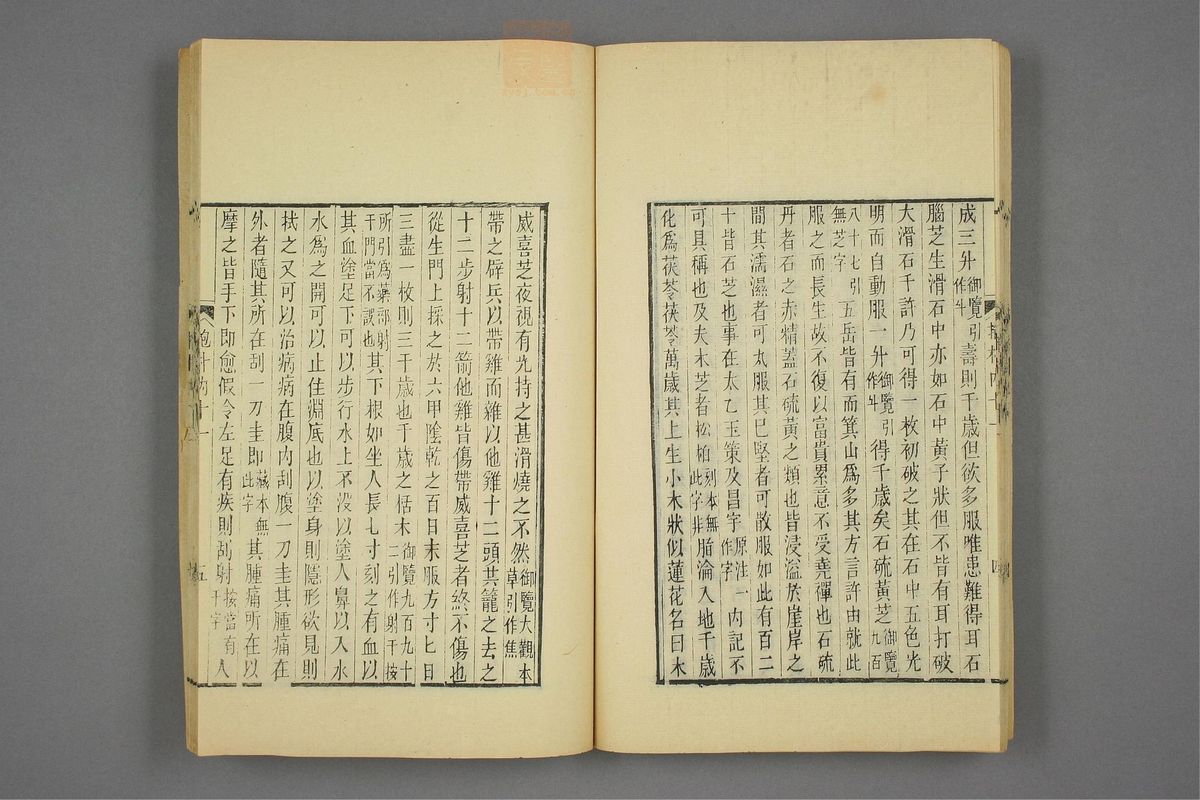 成三升御覽引作斗壽則千歲但欲多服唯患難得耳石
腦芝生滑石中亦如石中黃子狀但不皆有耳打破
大滑石千許乃可得一枚初破之其在石中五色光
明而自動服一升御覽引作斗得千歲矣石硫黃芝御覽九百
八十七引無芝字五岳皆有而箕山爲多其方言許由就此
服之而長生故不復以富貴累意不受堯禪也石硫
丹者石之赤精蓋石硫黃之類也皆浸溢於崖岸之
間其濡濕者可丸服其已堅者可散服如此有百二
十皆石芝也事在太乙玉策及昌宇原注一作字內記不
可具稱也及夫木芝者松柏刻本無此字非脂淪入地千歲
化爲茯苓茯苓萬歲其上生小木狀似蓮花名曰木
威喜芝夜視有光持之甚滑燒之不然御覽大觀本草引作焦
帶之辟兵以帶雞而雜以他雞十二頭其籠之去之
十二步射十二箭他雞皆傷帶威喜芝者終不傷也
從生門上採之於六甲陰乾之百日末服方寸匕日
三盡一枚則三千歲也千歲之栝木御覽九百九十二引作射干按
所引爲藥部射干門當不誤也其下根如坐人長七寸刻之有血以
其血塗足下可以步行水上不沒以塗人鼻以入水
水爲之開可以止住淵底也以塗身則隱形欲見則
拭之又可以治病病在腹內刮腹一刀圭其腫痛在
外者隨其所在刮一刀圭即藏本無此字其腫痛所在以
摩之皆手下即愈假令左足有疾則刮射按當有干字人
五